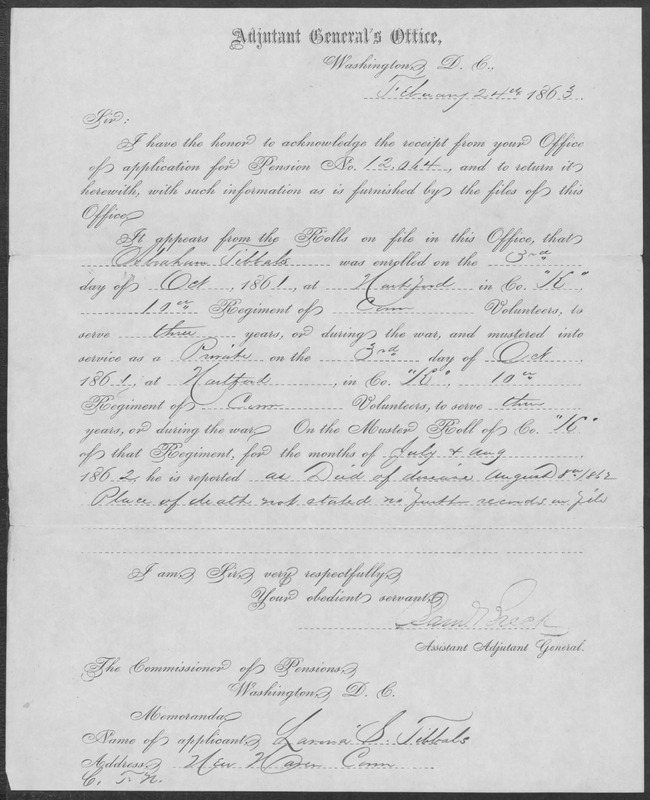 Adjutant General's Office,
Washington, D. C.,
February 24th 1863
Sir:
I have the honor to acknowledge the receipt from your Office
of application for Pension No. 12,064, and to return it
herewith, with such information as is furnished by the files of this
Office.
It appears from the Rolls on file in this Office, that
Abraham Tibbals was enrolled on the 3rd
day of Oct, 1861, at Hartford in Co. "K",
10th Regiment of Conn Volunteers, to
serve three years, or during the war, and mustered into
service as a Private on the 3rd day of Oct
1861, at Hartford, in Co. "K", 10th
Regiment of Conn Volunteers, to serve three
years, or during the war. On the Muster Roll of Co. "K"
of that Regiment, for the months of July & Aug
1862, he is reported as Died of disease August 8th 1862
Place of death not stated no further record on file
I am, Sir, very respectfully,
Your obedient servant,
Saml Breck
Assistant Adjutant General.
The Commissioner of Pensions,
Washington, D. C.
Memoranda,
Name of applicant, S. Tibbals
Address, New Haven Conn
C. T. N.